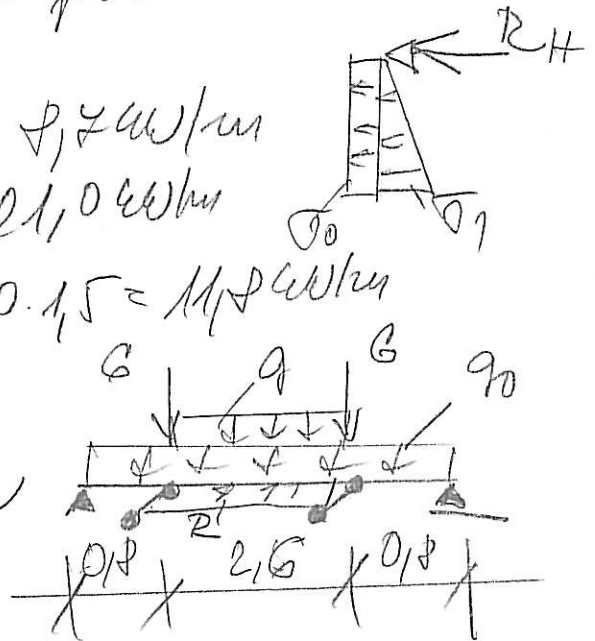 R_H
8,7 kN/m
21,0 kN/m
0·1,5 = 11,8 kN/m
σ0 σ1
G q G q0
R
0,8 2,6 0,8